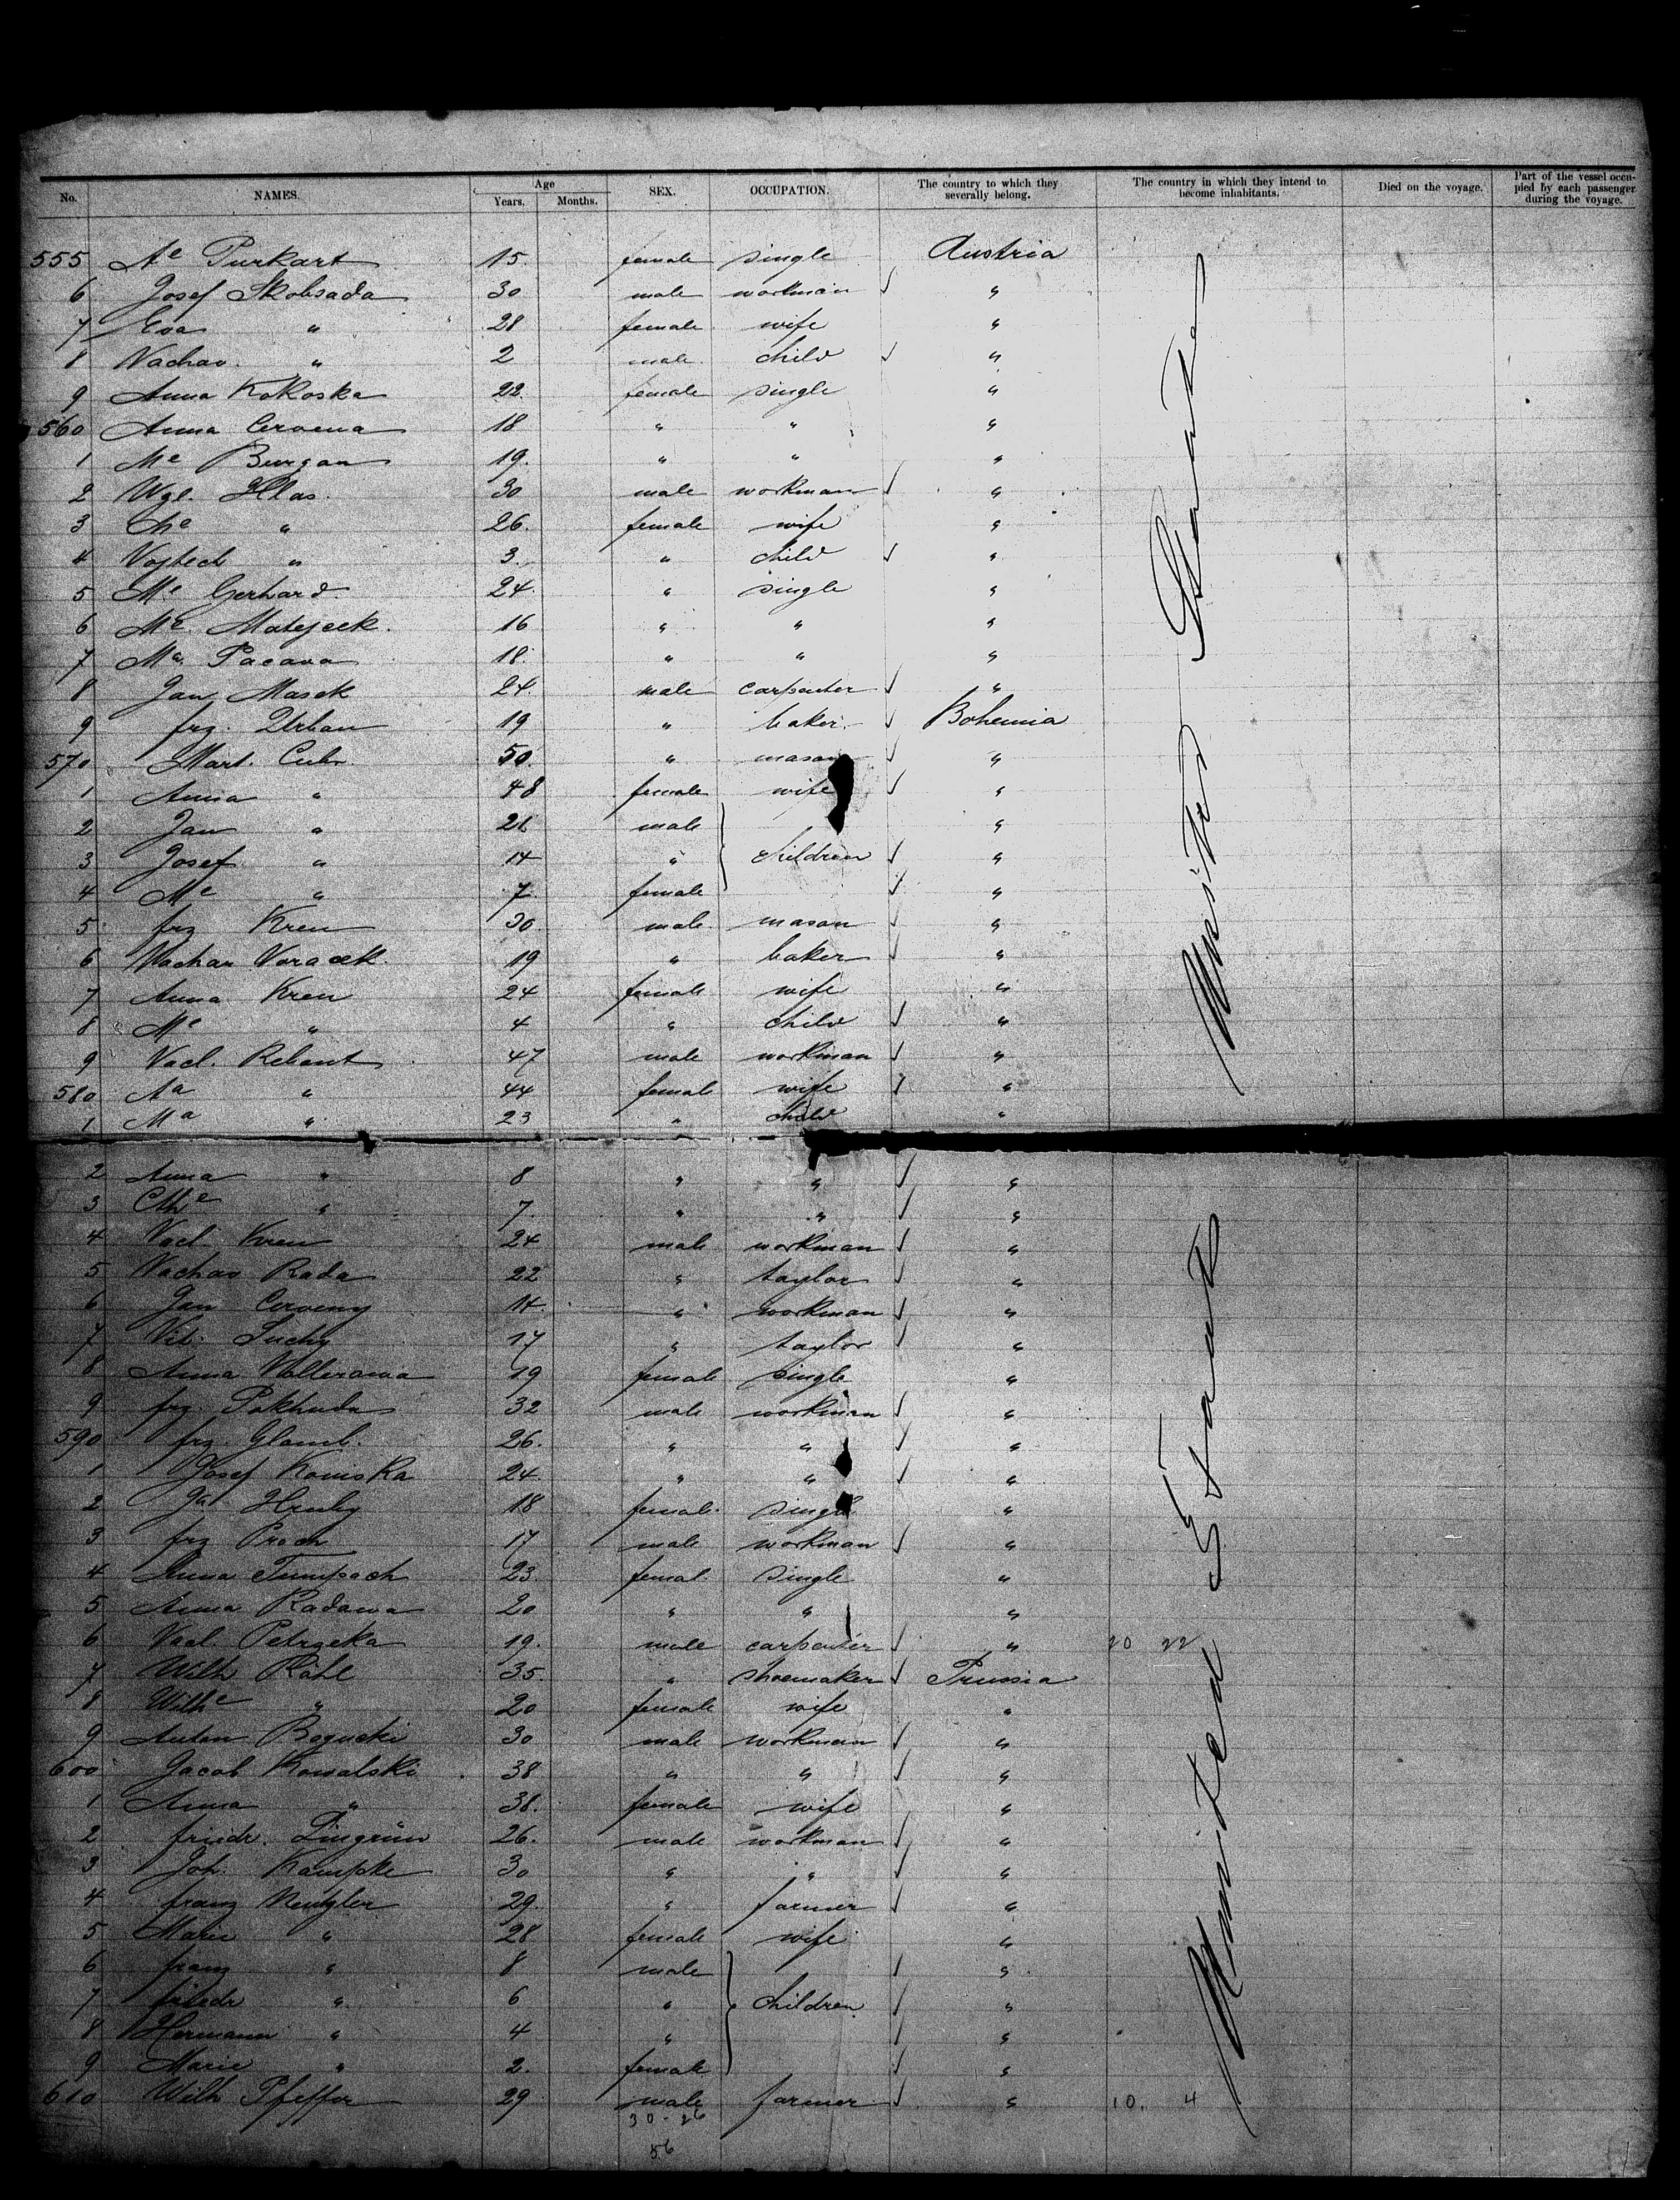 No. NAMES. Age Years. Months. SEX. OCCUPATION. The country to which they severally belong. The country in which they intend to become inhabitants. Died on the voyage. Part of the vessel occupied by each passenger during the voyage.
555 Ae Purkart 15 female single Austria
6 Josef Skobsada 30 male workman ✓ "
7 Eva " 28 female wife "
8 Vachav. " 2 male child ✓ "
9 Anna Kokoska 22 female single "
560 Anna Cervena 18 " " "
1 Me Burgan 19. " " "
2 Wgl. Hlas. 30 male workman ✓ "
3 " 26. female wife "
4 Vojtech " 3. " child ✓ "
5 Me Gerhard 24. " single "
6 Me Matejcek. 16 " " "
7 Ma Pacava 18. " " "
8 Jan Masek 24. male carpenter ✓ "
9 frz. Urban 19 " baker. ✓ Bohemia
570 Mart. Cub. 50. " mason ✓ "
1 Anna " 48 female wife ✓ "
2 Jan " 21 male "
3 Josef " 14 " children ✓ "
4 Me " 7. female ✓ "
5 frz Kren 30. male. mason ✓ "
6 Vachav Voracek. 19 " baker ✓ "
7 Anna Kren 24 female wife "
8 Me " 4 " child ✓ "
9 Vacl. Rebant 47 male workman ✓ "
580 Aa " 44 female wife ✓ "
1 Ma " 23 " child "
2 Anna " 8 " " ✓ "
3 Cthe " 7. " " ✓ "
4 Vacl. Kren 24 male workman ✓ "
5 Vachav Rada 22 " taylor ✓ "
6 Jan Cerveny 14. " workman ✓ "
7 Vit. Suchy 17 " taylor ✓ "
8 Anna Wollerawa 19 female single "
9 frz. Pokhuda 32 male workman ✓ "
590 frz. Glamb. 26. " " ✓ "
1 Josef Koniska 24. " " ✓ "
2 Ja Hruby 18 female. single "
3 frz Proch 17 male workman ✓ "
4 Anna Tumpach 23. femal. single "
5 Anna Radawa 20 " " "
6 Vacl. Petrzeka 19. male carpenter ✓ " 20 22
7 Wilh Rahl 35. " shoemaker ✓ Prussia
8 Wilhe " 20 female wife "
9 Anton Bogucki 30 male workman ✓ "
600 Jacob Kowalski 38 " " ✓ "
1 Anna " 38. female wife "
2 friedr. Lingrün 26. male workman ✓ "
3 Joh. Kampke 30 " " ✓ "
4 franz Neugler 29. " farmer ✓ "
5 Marie " 28 female wife "
6 franz " 8 male ✓ "
7 friedr " 6 " children ✓ "
8 Hermann " 4 " ✓ "
9 Marie " 2. female ✓ "
610 Wilh Pfeffer 29 male farmer ✓ " 10. 4
30. 26
56
United States
United States